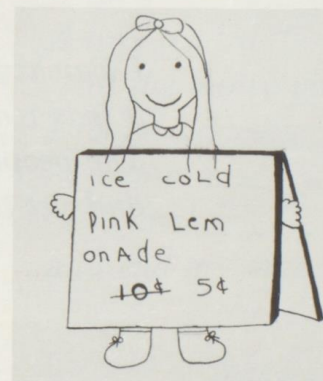 ice coLd
Pink Lem
onAde
10¢ 5¢